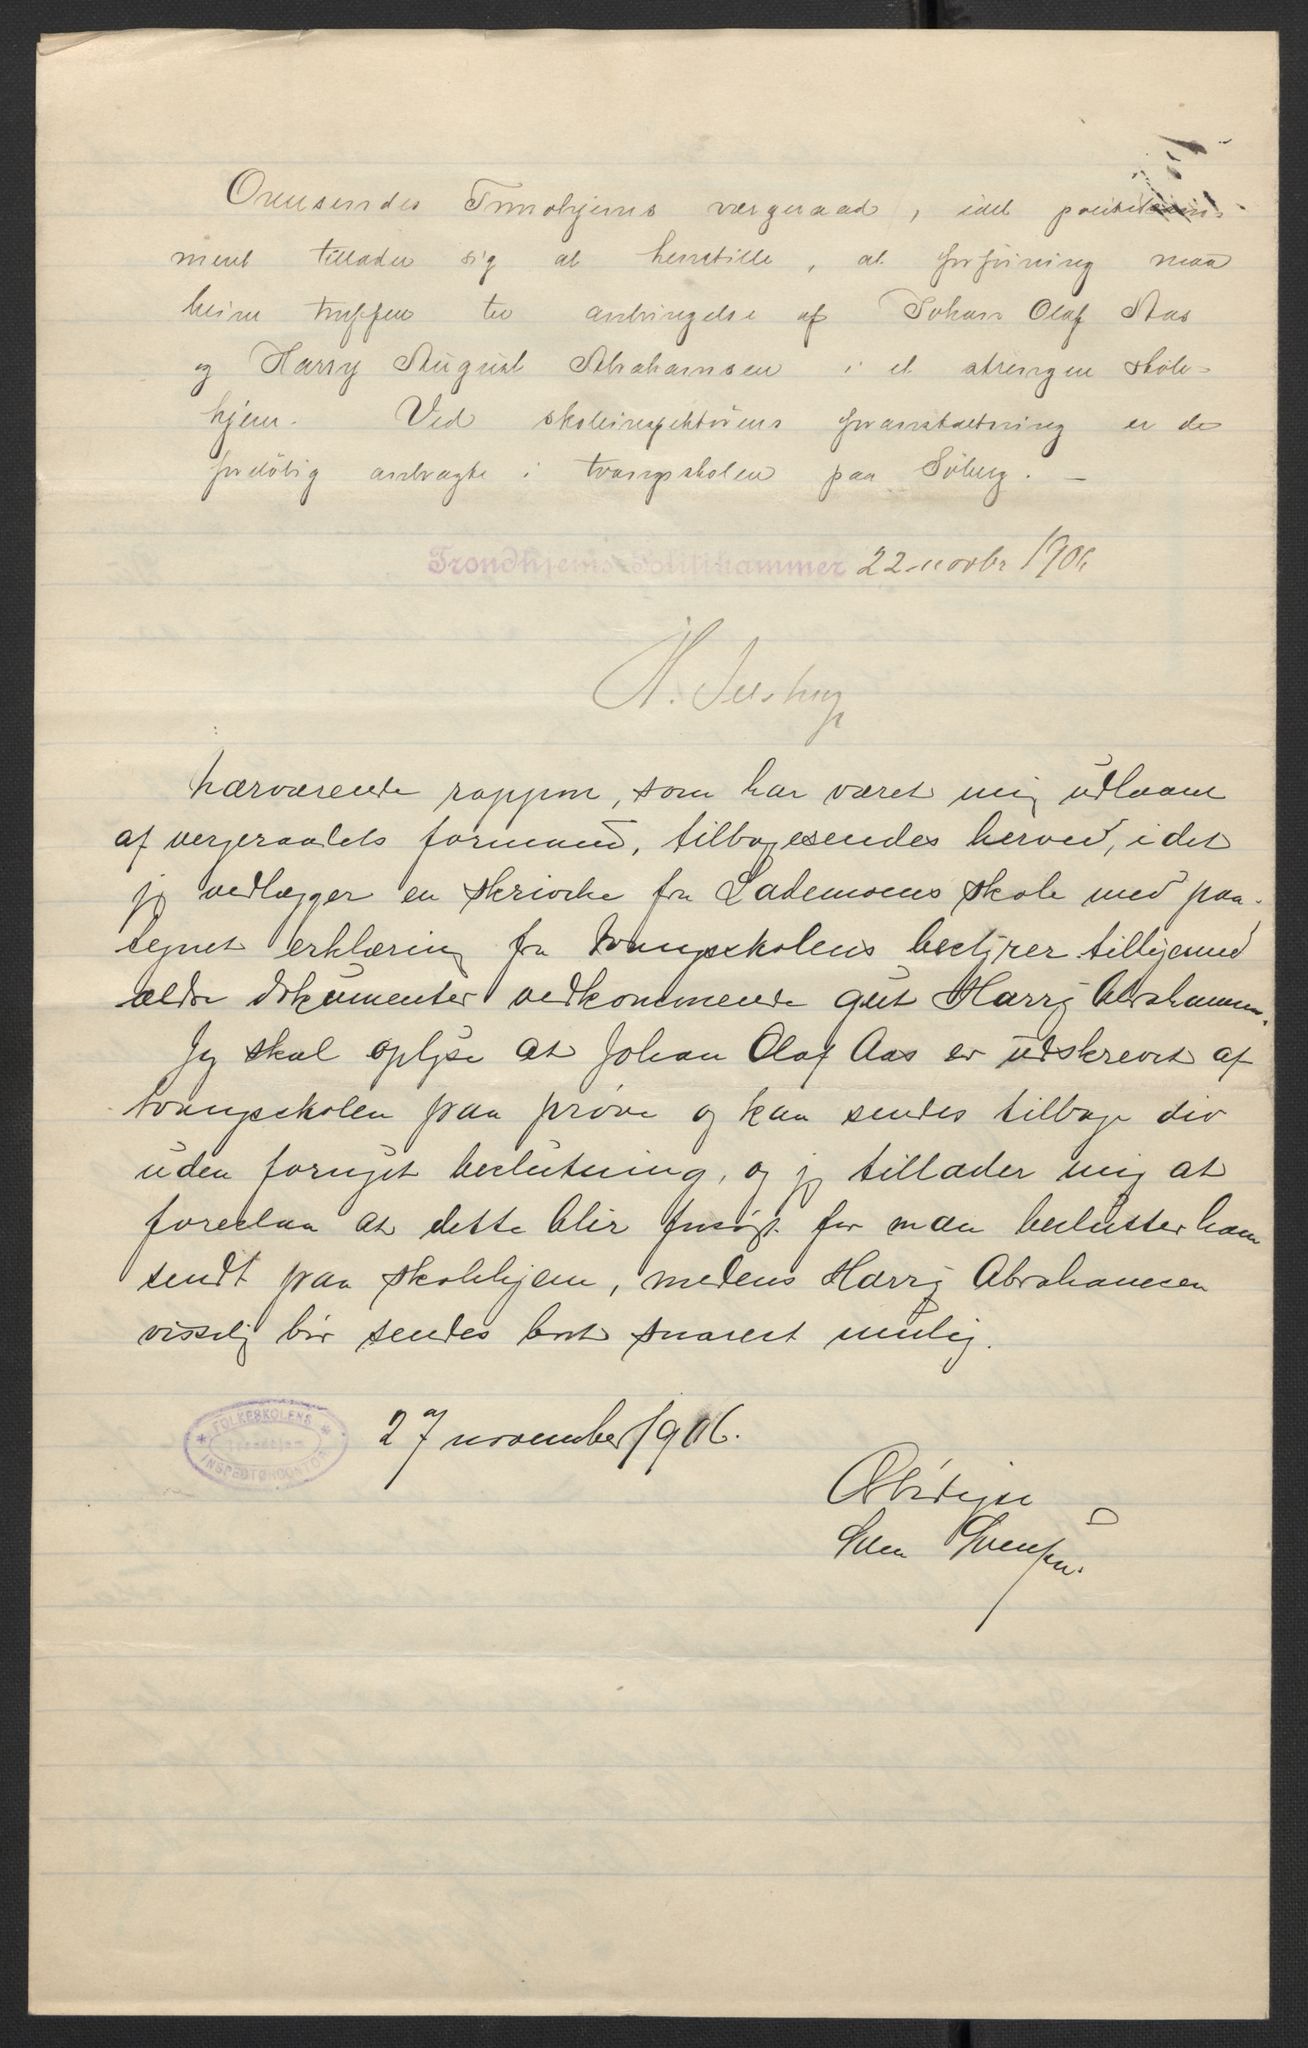 Oversendes Trondhjems værgeraad, idet politikam-
meret tillader sig at henstille, at forføining maa
blive truffen til anbringelse af Johan Olaf Aas
og Harry August Abrahamsen i et strengere skole-
hjem. Ved skoleinspektørens foranstaltning er de
foreløbig anbragte i tvangsskolen paa Søberg. —
Trondhjems Politikammer 22 novbr 1906
H.
Nærværende rapport, som har været mig udlaant
af vergeraadets formand, tilbagesendes herved, idet
jeg vedlægger en skrivelse fra Lademoens skole med paa-
tegnet erklæring fra tvangsskolens bestyrer tilligemed
ældre dokumenter vedkommende gut Harry Abrahamsen.
Jeg skal oplyse at Johan Olaf Aas er udskrevet af
tvangsskolen paa prøve og kan sendes tilbage did
uden fornyet beslutning, og jeg tillader mig at
foreslaa at dette blir forsøgt før man beslutter ham
sendt paa skolehjem, medens Harry Abrahamsen
visselig bør sendes bort snarest mulig.
FOLKESKOLENS
Trondhjem
INSPEKTØRCONTOR
27 november 1906.
Ærbødigst
Sven Svensen.